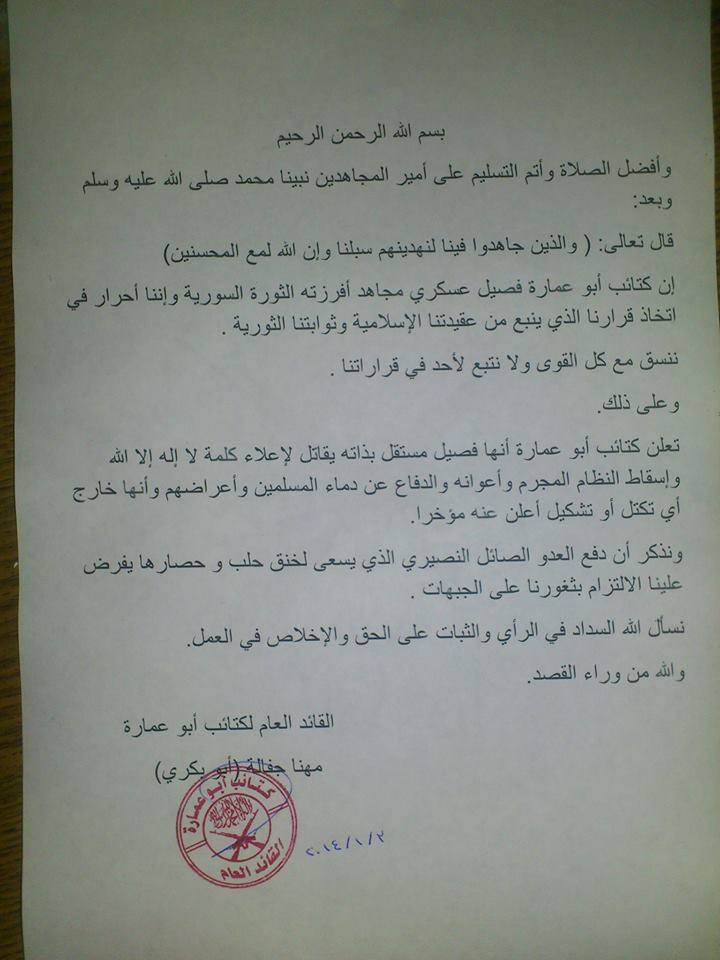 بسم الله الرحمن الرحيم
وأفضل الصلاة وأتم التسليم على أمير المجاهدين نبينا محمد صلى الله عليه وسلم
وبعد:
قال تعالى: ( والذين جاهدوا فينا لنهدينهم سبلنا وإن الله لمع المحسنين)
إن كتائب أبو عمارة فصيل عسكري مجاهد أفرزته الثورة السورية وإننا أحرار في
اتخاذ قرارنا الذي ينبع من عقيدتنا الإسلامية وثوابتنا الثورية .
ننسق مع كل القوى ولا نتبع لأحد في قراراتنا .
وعلى ذلك.
تعلن كتائب أبو عمارة أنها فصيل مستقل بذاته يقاتل لإعلاء كلمة لا إله إلا الله
وإسقاط النظام المجرم وأعوانه والدفاع عن دماء المسلمين وأعراضهم وأنها خارج
أي تكتل أو تشكيل أعلن عنه مؤخرا.
ونذكر أن دفع العدو الصائل النصيري الذي يسعى لخنق حلب و حصارها يفرض
علينا الالتزام بثغورنا على الجبهات .
نسأل الله السداد في الرأي والثبات على الحق والإخلاص في العمل.
والله من وراء القصد.
القائد العام لكتائب أبو عمارة
مهنا جفالة (أبو بكري)
كتائب أبو عمارة
القائد العام
٢٠١٤/١/٢